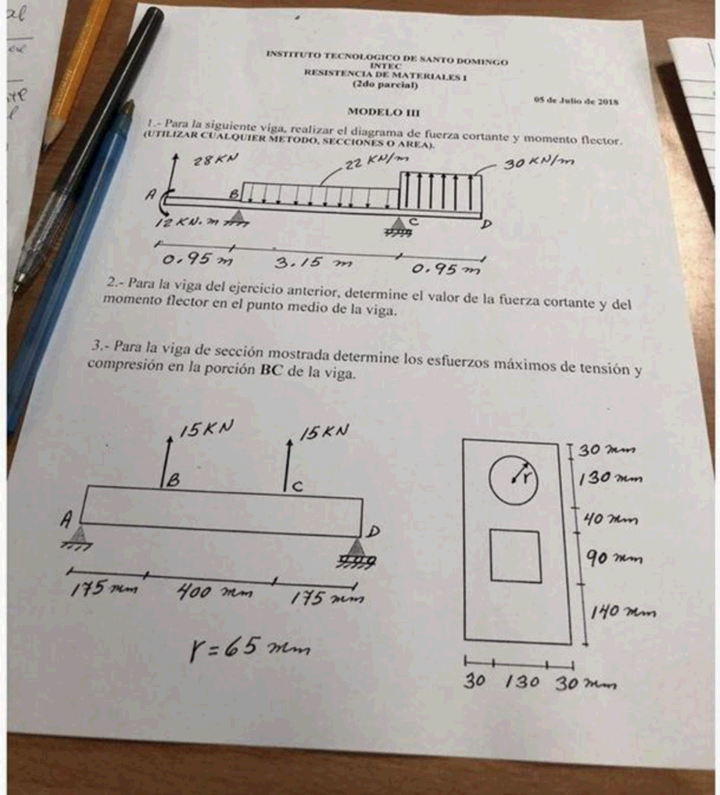 INSTITUTO TECNOLOGICO DE SANTO DOMINGO
INTEC
RESISTENCIA DE MATERIALES I
(2do parcial)
05 de Julio de 2018
MODELO III
1.- Para la siguiente viga, realizar el diagrama de fuerza cortante y momento flector.
(UTILIZAR CUALQUIER METODO, SECCIONES O AREA).
28 KN
22 KN/m
30 KN/m
A
B
C
D
12 KN.m
0.95 m
3.15 m
0.95 m
2.- Para la viga del ejercicio anterior, determine el valor de la fuerza cortante y del
momento flector en el punto medio de la viga.
3.- Para la viga de sección mostrada determine los esfuerzos máximos de tensión y
compresión en la porción BC de la viga.
15 KN
15 KN
B
C
A
D
175 mm
400 mm
175 mm
r = 65 mm
r
30 mm
130 mm
40 mm
90 mm
140 mm
30 130 30 mm